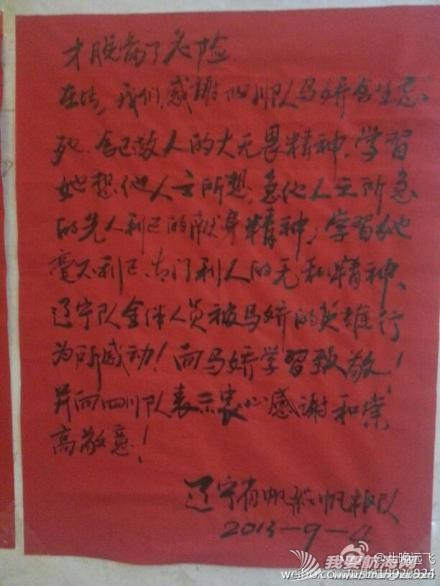 才脱离了危险.
在此,我们感谢四川队马娇舍生忘
死、舍己救人的大无畏精神,学习
她想他人之所想,急他人之所急
的先人后己的献身精神;学习她
毫不利己专门利人的无私精神、
辽宁队全体人员被马娇的英雄行
为所感动!向马娇学习致敬!
并向四川队表示衷心感谢和崇
高敬意!
辽宁省帆船帆板队
2013-9-
我要航海网